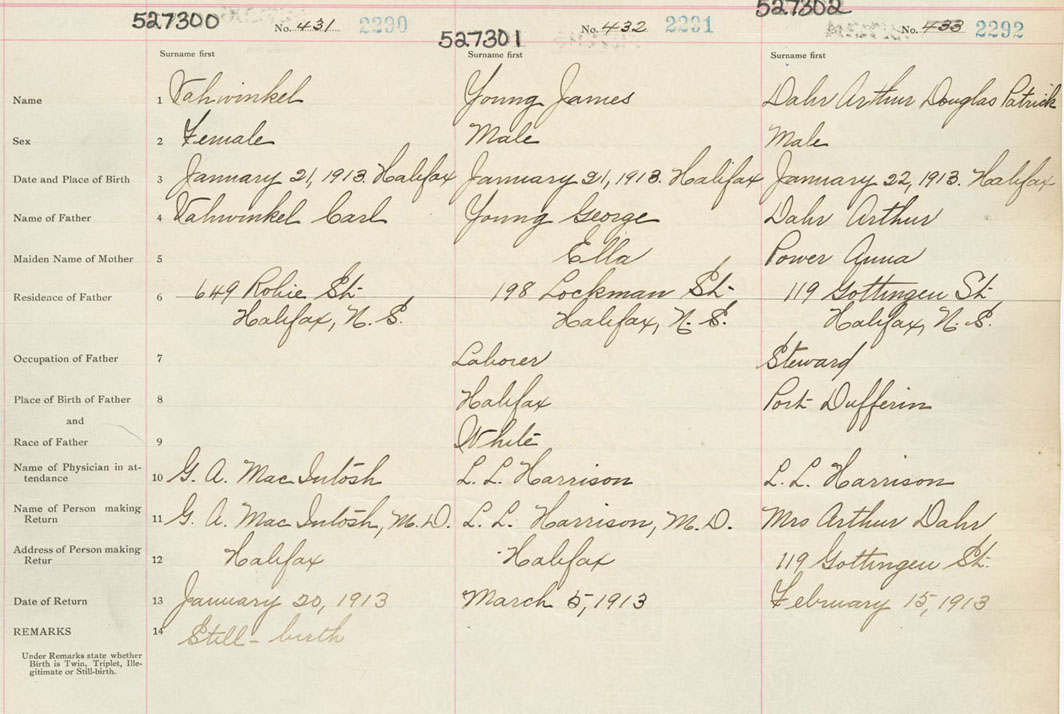 527300 No. 431 2290
527301 No. 432 2291
527302 No. 433 2292
Surname first Surname first Surname first
Name 1 Vahwinkel Young James Dahr Arthur Douglas Patrick
Sex 2 Female Male Male
Date and Place of Birth 3 January 21, 1913. Halifax January 21, 1913. Halifax January 22, 1913. Halifax
Name of Father 4 Vahwinkel Carl Young George Dahr Arthur
Maiden Name of Mother 5 Ella Power Anna
Residence of Father 6 649 Robie St. 198 Lockman St. 119 Gottingen St.
Halifax, N. S. Halifax, N. S. Halifax, N. S.
Occupation of Father 7 Laborer Steward
Place of Birth of Father 8 Halifax Port Dufferin
and
Race of Father 9 White
Name of Physician in at-
tendance 10 G. A. MacIntosh L. L. Harrison L. L. Harrison
Name of Person making
Return 11 G. A. MacIntosh, M. D. L. L. Harrison, M. D. Mrs Arthur Dahr
Address of Person making
Retur 12 Halifax Halifax 119 Gottingen St.
Date of Return 13 January 20, 1913 March 5, 1913 February 15, 1913
REMARKS 14 Still-birth
Under Remarks state whether
Birth is Twin, Triplet, Ille-
gitimate or Still-birth.